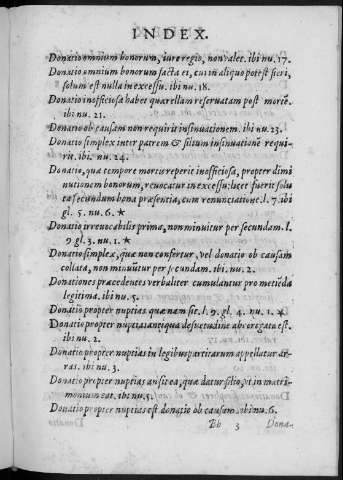 INDEX.
Donatio omnium bonorum, iure regio, non valet. ibi nu. 17.
Donatio omnium bonorum facta ei, cui in aliquo potest fieri,
solum est nulla in excessu. ibi nu. 18.
Donatio inofficiosa habet quærellam reseruatam post mortẽ.
ibi nu. 21.
Donatio ob causam non requirit insinuationem. ibi nu. 23.
Donatio simplex inter patrem & filium insinuationẽ requi-
rit. ibi. nu. 24.
Donatio, quæ tempore mortis reperit inofficiosa, propter dimi
nutionem bonorum, reuocatur in excessu: licet fuerit solu
ta secundum bona præsentia, cum renunciatione. l. 7. ibi
gl. 5. nu. 6. *
Donatio irreuocabilis prima, non minuitur per secundam. l.
9 gl. 3. nu. 1. *
Donatio simplex, quæ non confertur, vel donatio ob causam
collata, non minuitur per secundam. ibi nu. 2.
Donationes præcedentes verbaliter cumulantur pro metiẽda
legitima. ibi nu. 5.
Donatio propter nuptias quænam sit. l. 9. gl. 4. nu. 1. *
Donatio propter nuptias antiqua desuetudine abrogata est.
ibi nu. 2.
Donatio propter nuptias in legibus partitarum appellatur ar-
ras. ibi nu. 3.
Donatio propter nuptias an sit ea, quæ datur filio, vt in matri
monium eat. ibi nu. 5.
Donatio propter nuptias est donatio ob causam. ibi nu. 6.
Bb 3 Dona-